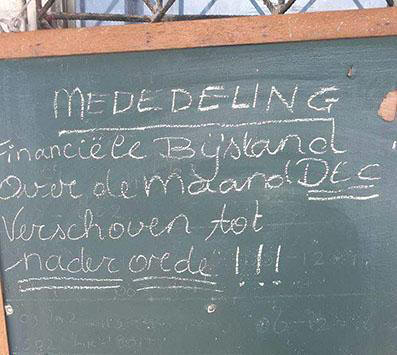 MEDEDELING
Financiële Bijstand
Over de maand DEC
Verschoven tot
nader orde !!!